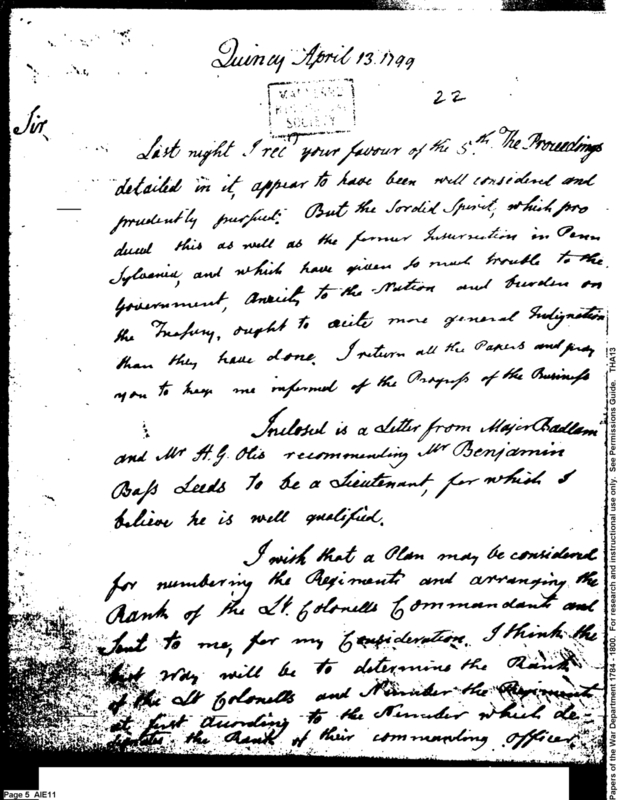 Quincy April 13. 1799
MARYLAND
HISTORICAL
SOCIETY
22
Sir
Last night I recd your favour of the 5th. The Proceedings
detailed in it, appear to have been well considered and
prudently pursued. But the Sordid Spirit, which pro
duced this as well as the former Insurrection in Penn
sylvania, and which have given so much trouble to the
Government, Anxiety to the Nation and burden on
the Treasury, ought to excite more general Indignation
than they have done. I return all the Papers and pray
you to keep me informed of the Progress of the Business
Inclosed is a Letter from Major Badlam
and Mr H. G. Otis recommending Mr Benjamin
Bass Leeds to be a Lieutenant, for which I
believe he is well qualified.
I wish that a Plan may be considered
for numbering the Regiments and arranging the
Rank of the Lt. Colonells Commandants and
Sent to me, for my Consideration. I think the
best way will be to determine the Rank
of the Lt Colonells and Number the Regiments
at first according to the Number which de-
signates the Rank of their commanding officer.
Page 5 AIE11
Papers of the War Department 1784 - 1800. For research and instructional use only. See Permissions Guide. THA13